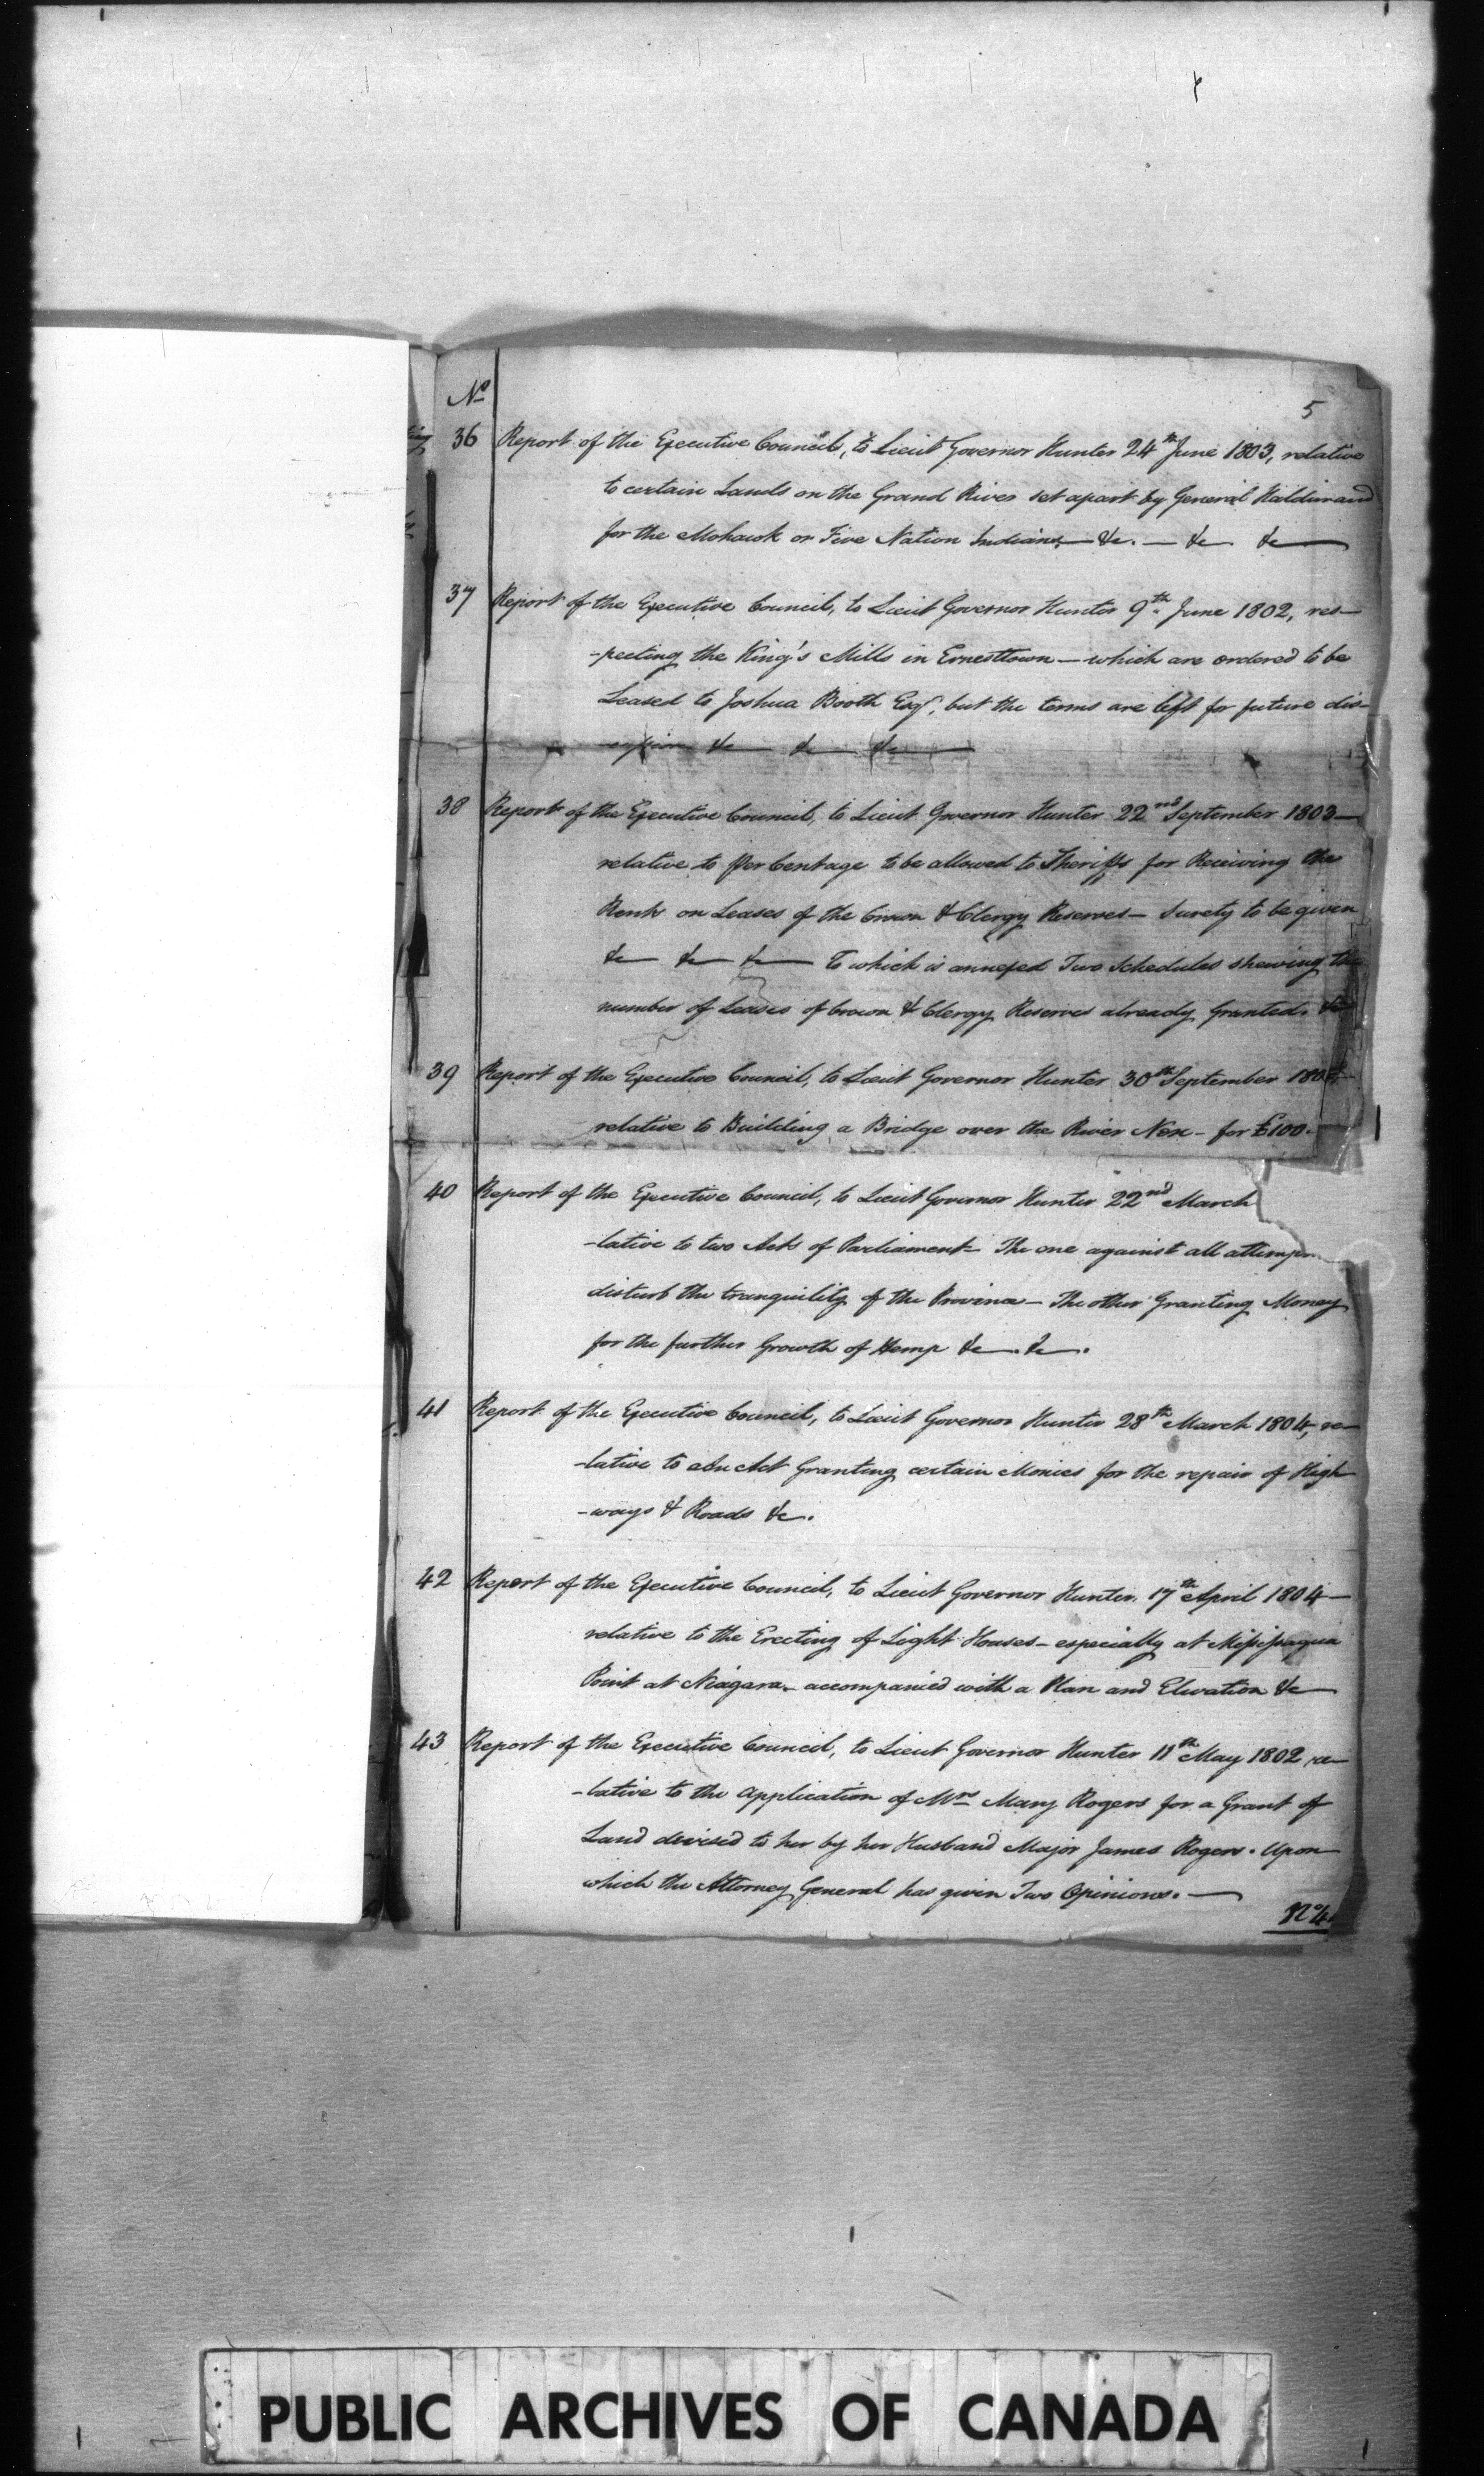 5
No
36 Report of the Executive Council, to Lieut Governor Hunter 24th June 1803, relative
to certain Lands on the Grand River set apart by General Haldimand
for the Mohawk or Five Nation Indians,— &c. — &c &c —
37 Report of the Executive Council, to Lieut Governor Hunter 9th June 1802, res—
-pecting the King's Mills in Ernesttown — which are ordered to be
Leased to Joshua Booth Esqr, but the terms are left for future dis-
&c — &c — &c —
38 Report of the Executive Council, to Lieut Governor Hunter 22nd September 1803 —
relative to Per Centage to be allowed to Sheriffs for Receiving the
Rents on Leases of the Crown & Clergy Reserves — Surety to be given
&c — &c — &c — To which is annexed Two Schedules shewing the
number of Leases of Crown & Clergy Reserves already Granted. &c
39 Report of the Executive Council, to Lieut Governor Hunter 30th September
relative to Building a Bridge over the River Nen - for £100-
40 Report of the Executive Council, to Lieut Governor Hunter 22nd March
-lative to two Acts of Parliament — The one against all
disturb the tranquility of the Province — The other Granting Money
for the further Growth of Hemp &c — . &c — .
41 Report of the Executive Council, to Lieut Governor Hunter 28th March 1804, re—
-lative to an Act Granting certain Monies for the repair of High
-ways & Roads &c.
42 Report of the Executive Council, to Lieut Governor Hunter, 17th April 1804 —
relative to the Erecting of Light Houses — especially at Missisagua
Point at Niagara — accompanied with a Plan and Elevation &c —
43 Report of the Executive Council, to Lieut Governor Hunter 11th May 1802 re—
-lative to the application of Mrs Mary Rogers for a Grant of
Land devised to her by her Husband Major James Rogers. Upon
which the Attorney General has given Two Opinions. —
PUBLIC ARCHIVES OF CANADA